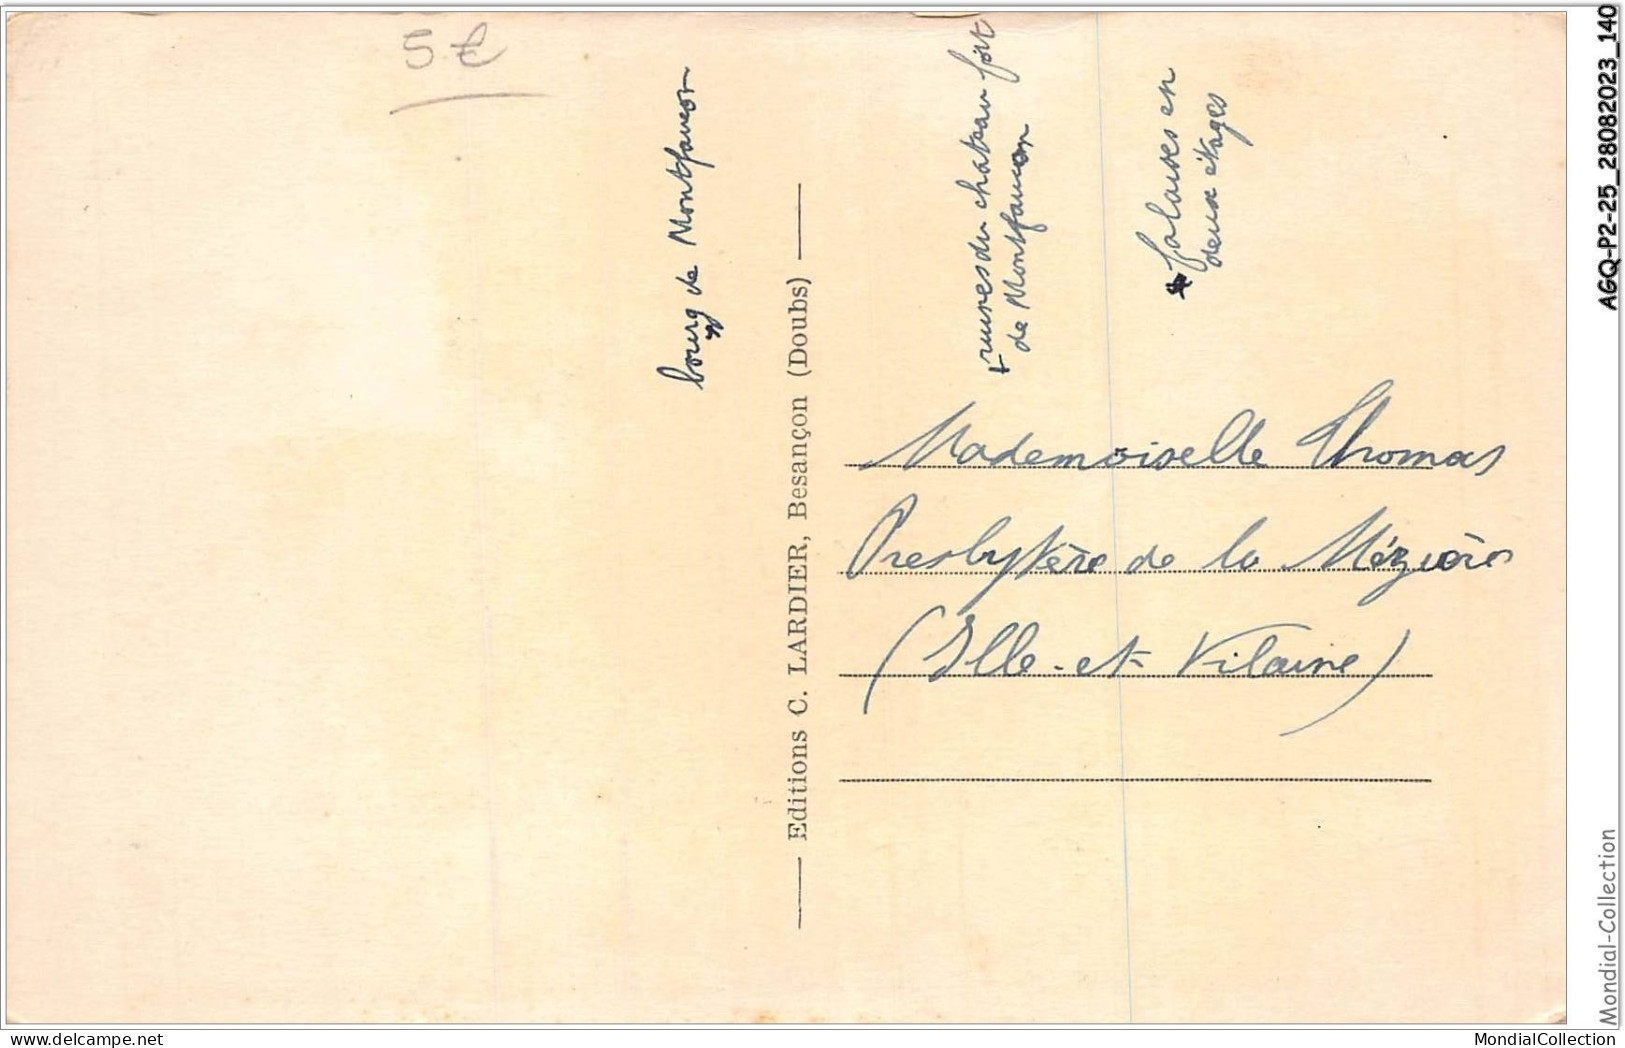 5 €
bourg de Montfaucon
Editions C. LARDIER, Besançon (Doubs)
+ ruines du chateau fort
de Montfaucon
* falaises en
deux étages
Mademoiselle Thomas
Presbytère de la Mézière
(Ille-et-Vilaine)
AGQ-P2-25_28082023_140
Mondial-Collection
MondialCollection